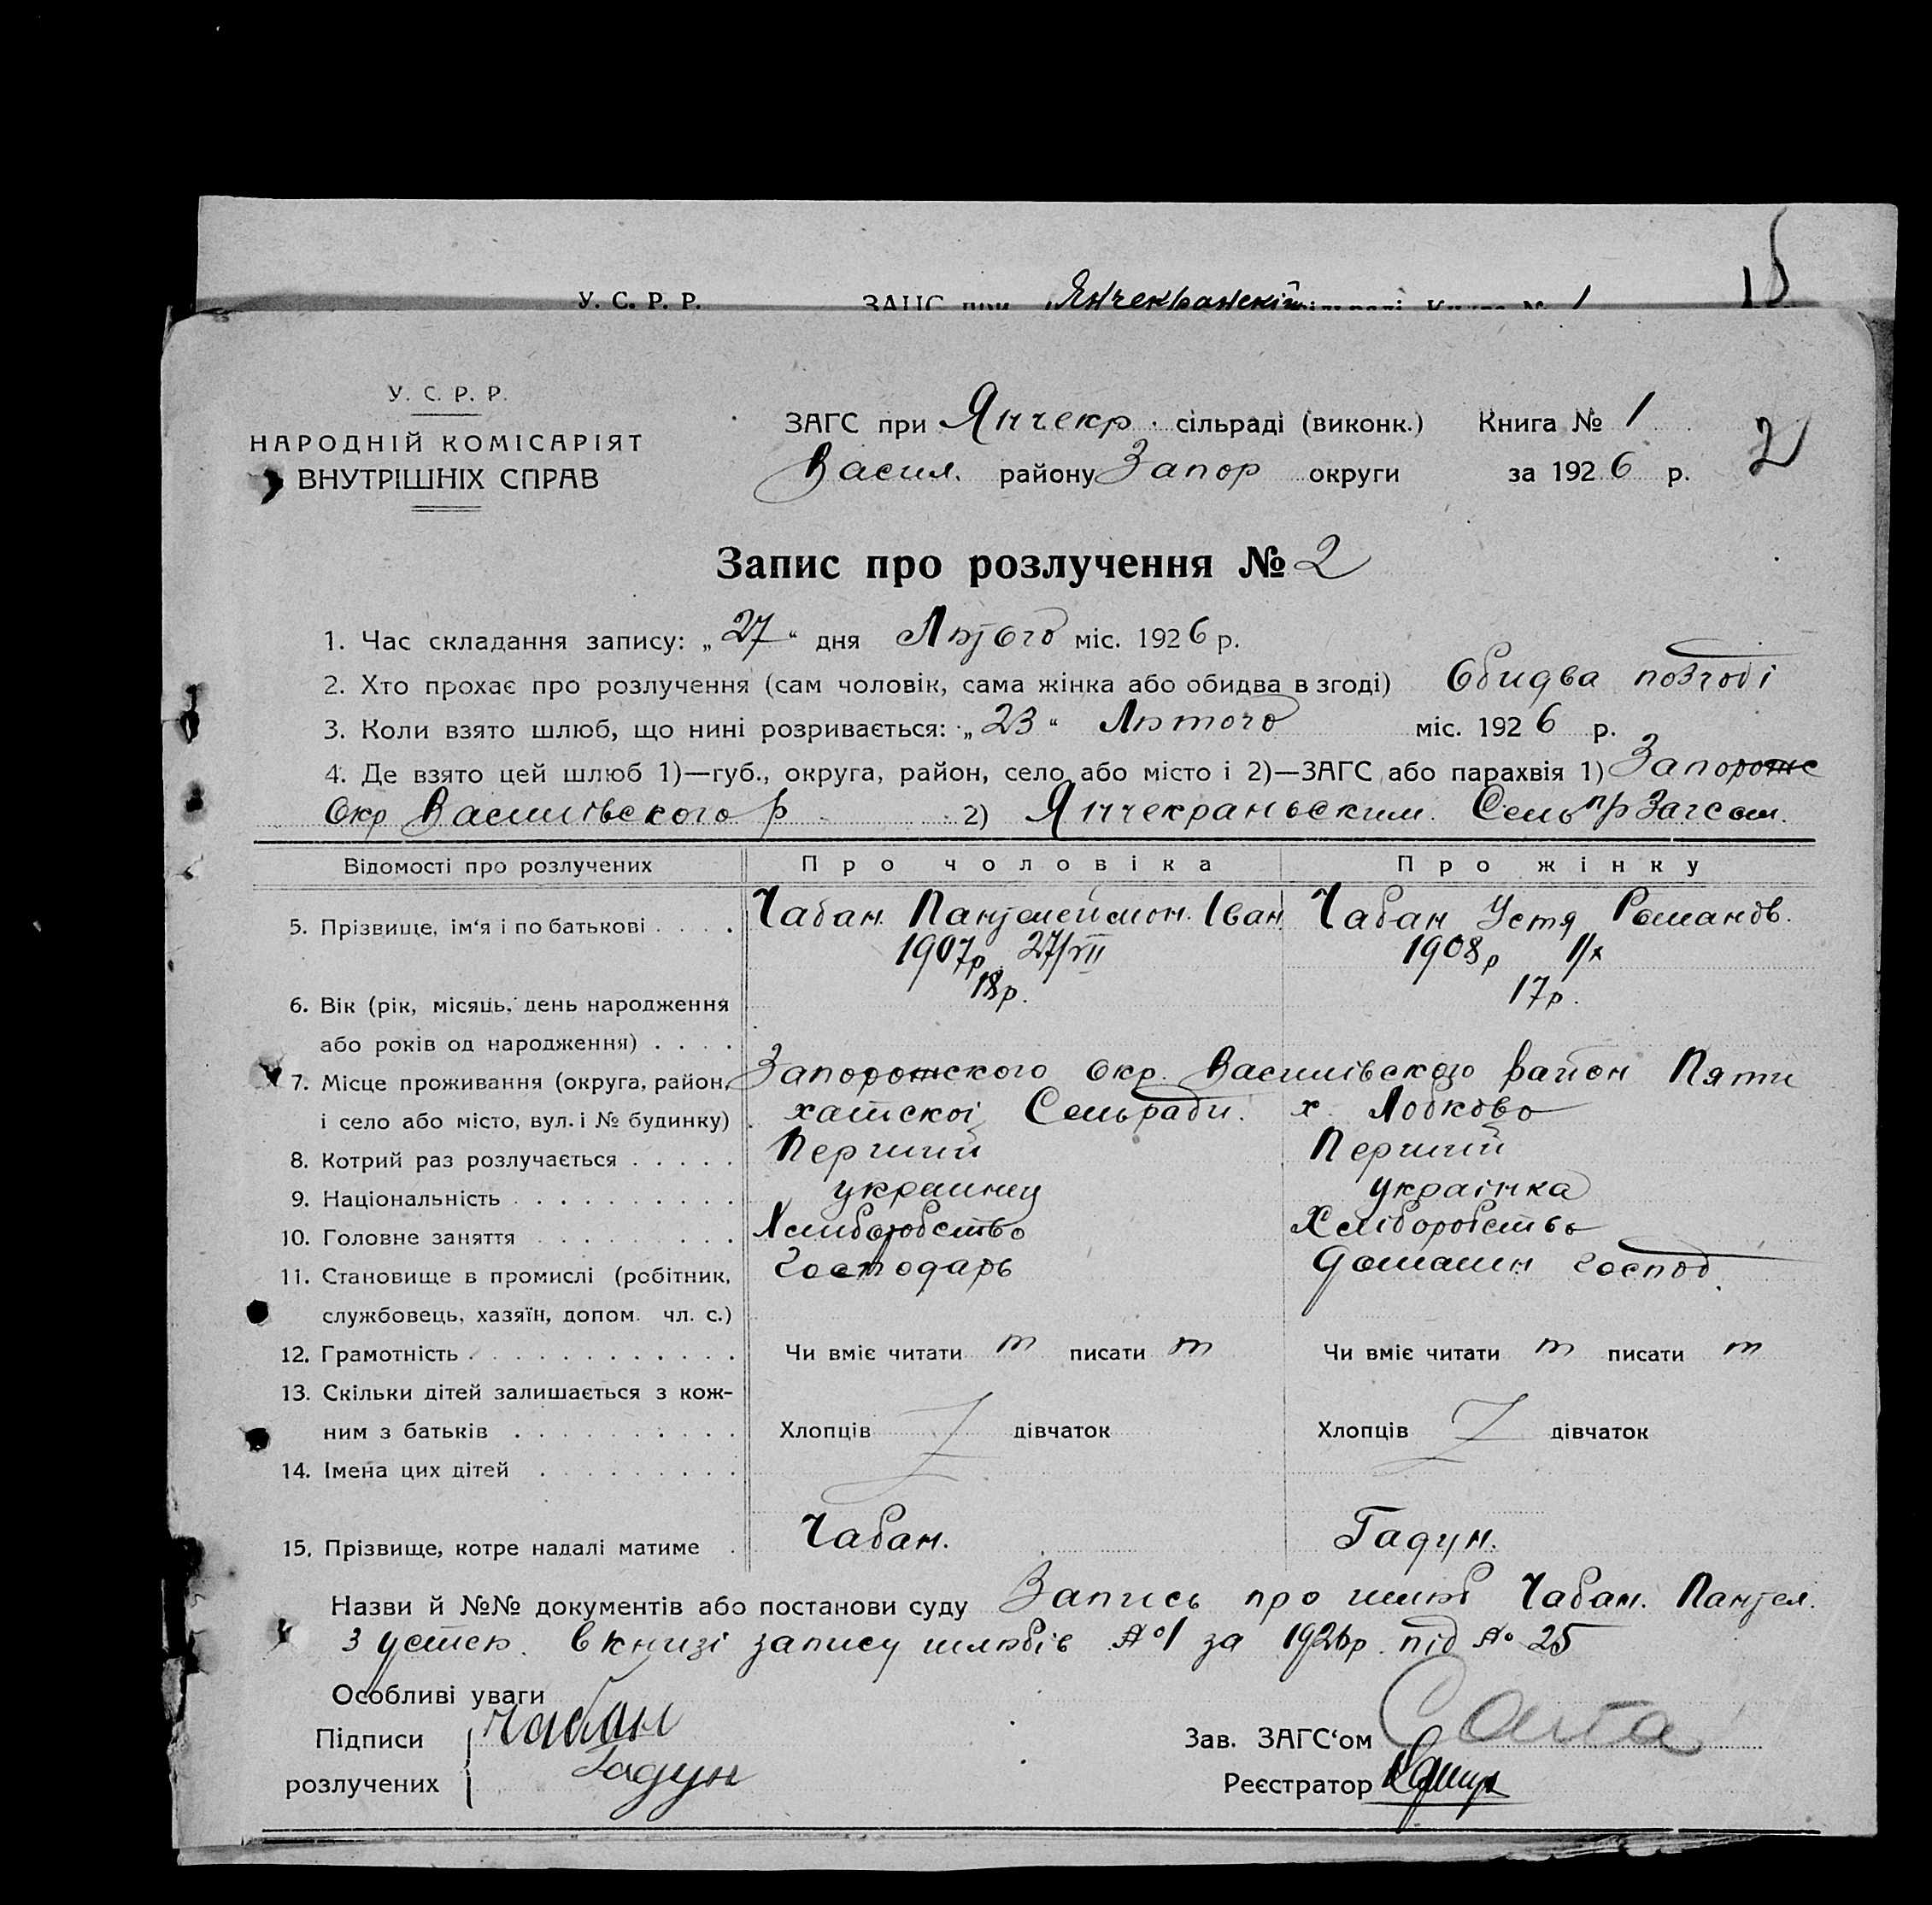 У. С. Р. Р. ЗАГС при Янчекранській сільраді Книга № 1
15
У. С. Р. Р.
НАРОДНІЙ КОМІСАРІЯТ
ВНУТРІШНІХ СПРАВ
ЗАГС при Янчекр. сільраді (виконк.) Книга № 1
Васил. району Запор округи за 1926 р.
2
Запис про розлучення № 2
1. Час складання запису: „27“ дня Лютого міс. 1926 р.
2. Хто прохає про розлучення (сам чоловік, сама жінка або обидва в згоді) Обидва позгоді
3. Коли взято шлюб, що нині розривається: „23“ Лютого міс. 1926 р.
4. Де взято цей шлюб 1)—губ., округа, район, село або місто і 2)—ЗАГС або парахвія 1) Запорожс
Окр Василівского р 2) Янчекраньским Сель пр Загсом.
Відомості про розлучених Про чоловіка Про жінку
5. Прізвище, ім‘я і по батькові . . . . Чабан. Пантелеймон. Іван Чабан Устя Романов.
1907р 27/VII 1908р 1/X
18р. 17р.
6. Вік (рік, місяць, день народження
або років од народження) . . . .
7. Місце проживання (округа, район, Запорожского окр. Василівского район Пяти
і село або місто, вул. і № будинку) хатскоі Сельради. х. Лобково
8. Котрий раз розлучається . . . . . Перший Перший
9. Національність . . . . . . . . . . украинец украінка
10. Головне заняття . . . . . . . . . Хлиборобство Хліборобство
11. Становище в промислі (робітник, Господарь домашн. господ.
службовець, хазяїн, допом. чл. с.)
12. Грамотність . . . . . . . . . . . . Чи вміє читати т писати т Чи вміє читати т писати т
13. Скільки дітей залишається з кож-
ним з батьків . . . . . . . . . . Хлопців дівчаток Хлопців дівчаток
14. Імена цих дітей . . . . . . . . .
15. Прізвище, котре надалі матиме . Чабан. Гадун.
Назви й №№ документів або постанови суду Запись про шлюб Чабан. Пантел.
З Устею. в книзі запису шлюбів №1 за 1926р. під № 25
Особливі уваги
Підписи Чабан Зав. ЗАГС‘ом
розлучених Гадун Реєстратор